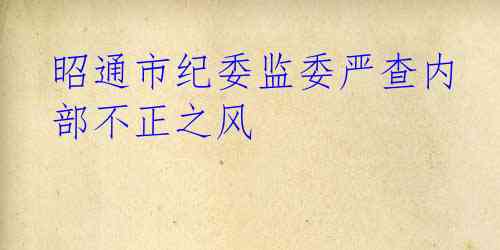 昭通市纪委监委严查内
部不正之风